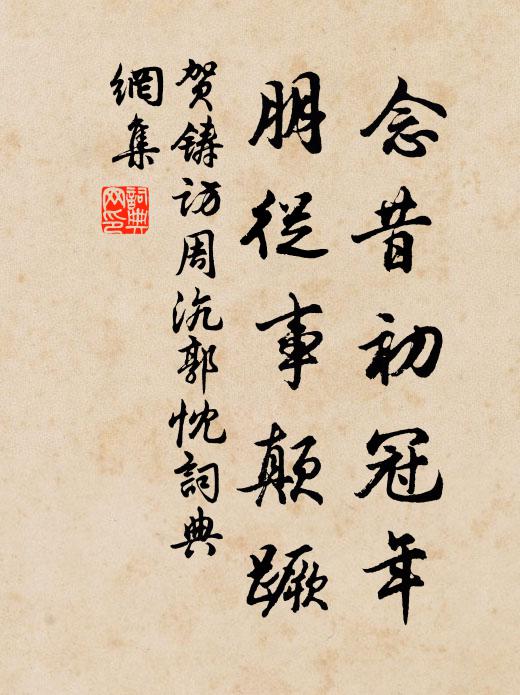 念昔初冠年
朋從事顛蹶
贺鑄访周沆郭忱詞典
網集
詞典網印